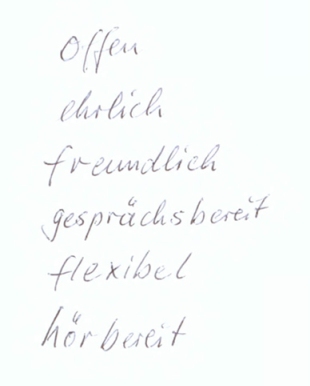 offen
ehrlich
freundlich
gesprächsbereit
flexibel
hörbereit